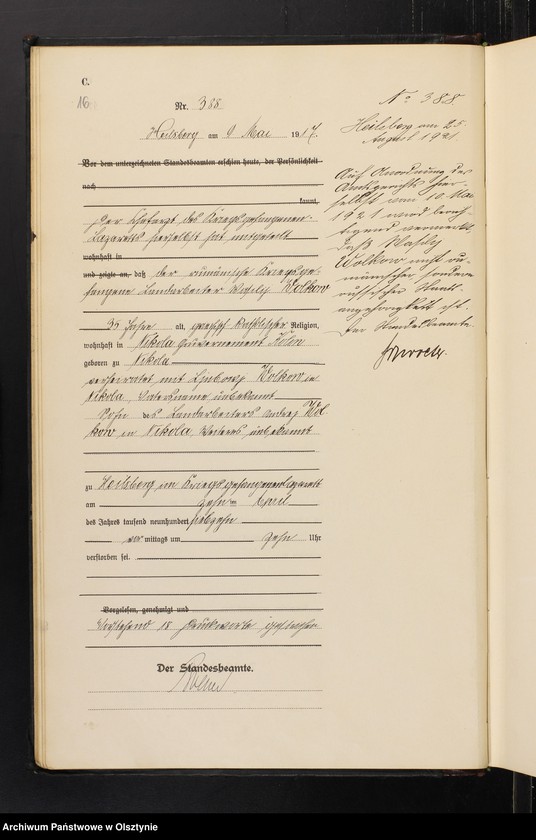 C.
16
Nr. 388.
Heilsberg am 9 Mai 1917.
Vor dem unterzeichneten Standesbeamten erschien heute, der Persönlichkeit
nach
kannt,
Der Chefarzt des Kriegsgefangenen-
Lazaretts hierselbst hat mitgeteilt
wohnhaft in
und zeigte an, daß der rumänische Kriegsge-
fangene Landarbeiter Wasily Wolkow
35 Jahre alt, griechisch katholischer Religion,
wohnhaft in Nikola Gouvernement
geboren zu Nikola
verheiratet mit Wolkow in
Nikola, Vatersname unbekannt
Sohn des Landarbeiters Andrej Wol-
kow in Nikola, Weiteres unbekannt
zu Heilsberg im Kriegsgefangenenlazarett
am zehnten April
des Jahres tausend neunhundert siebzehn
vormittags um zehn Uhr
verstorben sei.
Vorgelesen, genehmigt und
Vorstehend 18 Druckworte gestrichen
Der Standesbeamte.
No 388
Heilsberg am 25.
August 1921
Auf Anordnung des
Amtsgerichts hier-
selbst vom 10. Mai
1921 wird berich-
tigend vermerkt,
daß Wasily
Wolkow nicht ru-
mänischer sondern
russischer Staats-
angehörigkeit ist.
Der Standesbeamte
Archiwum Państwowe w Olsztynie